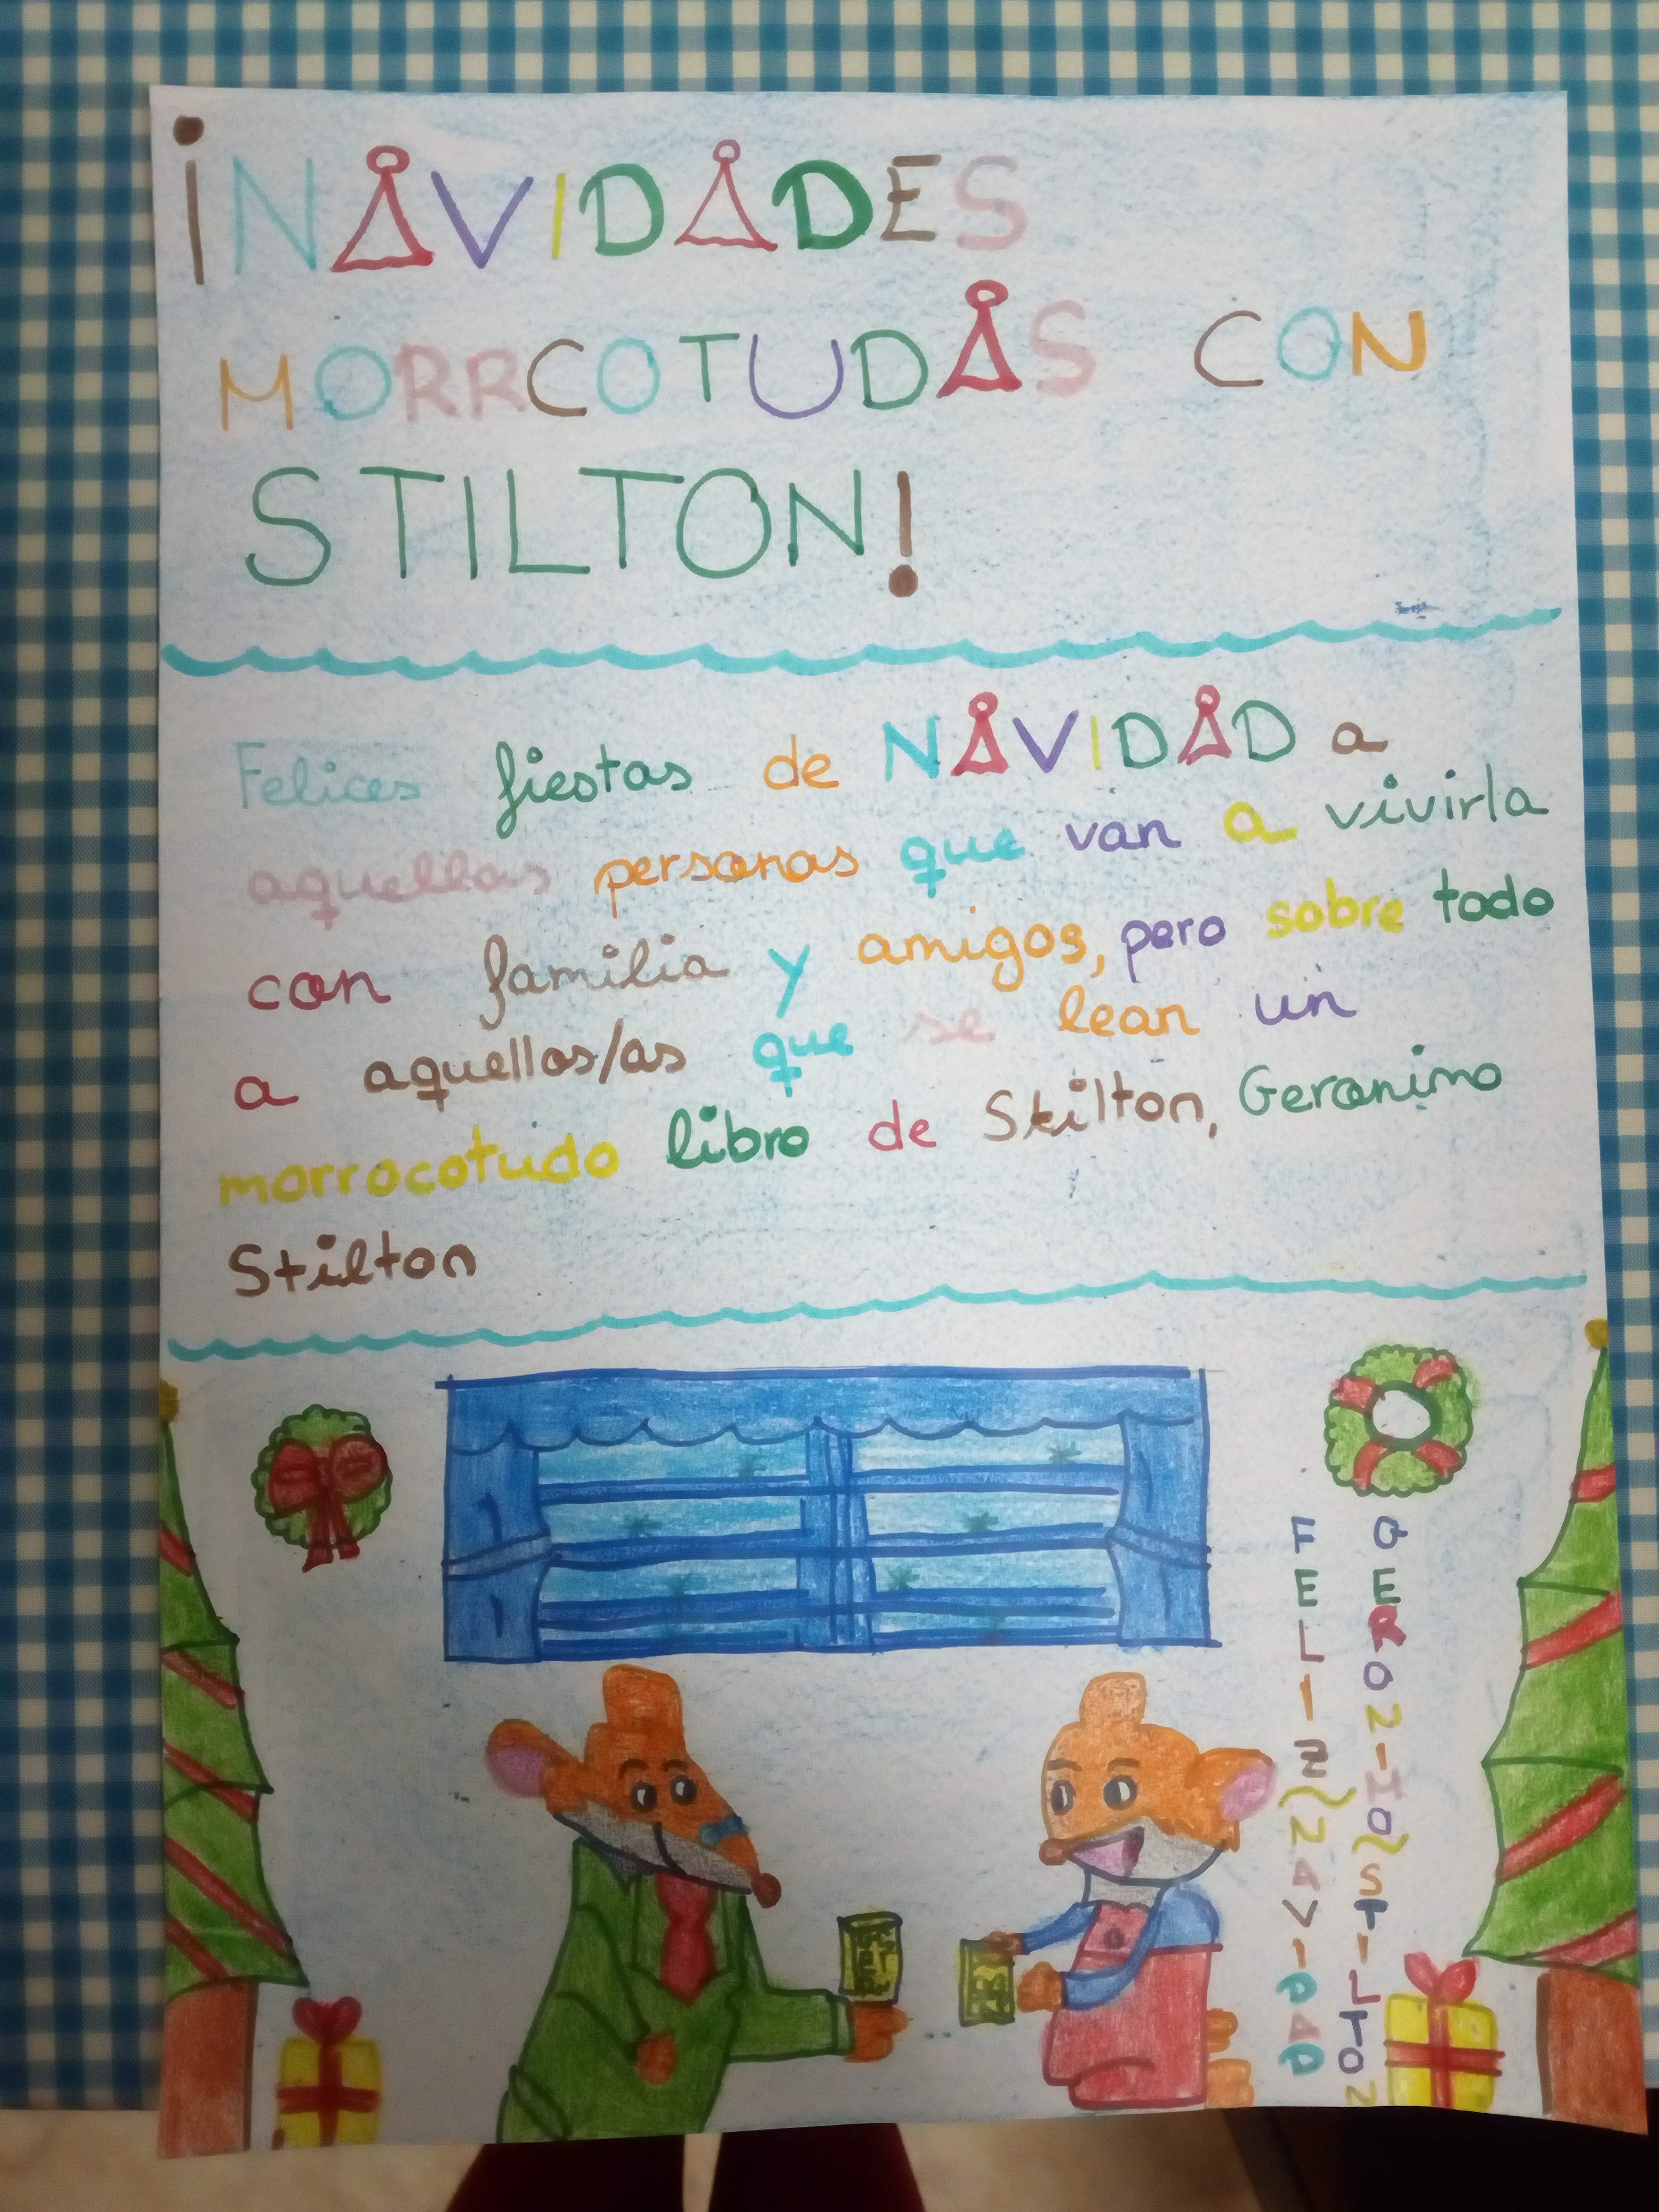 ¡NAVIDADES
MORRCOTUDAS CON
STILTON!
Felices fiestas de NAVIDAD a
aquellas personas que van a vivirla
con familia y amigos, pero sobre todo
a aquellos/as que se lean un
morrocotudo libro de Stilton, Geronimo
Stilton
FELIZ NAVIDAD
GERONIMO STILTON